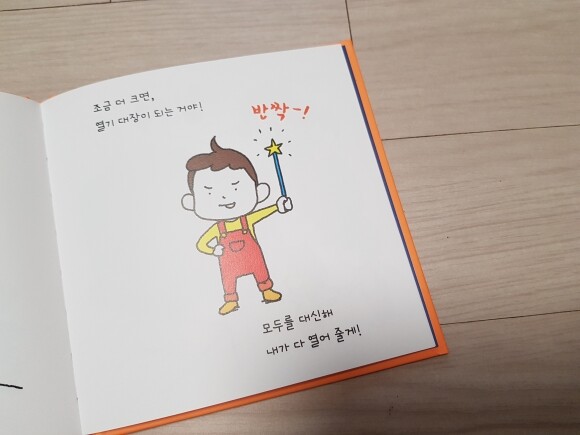 조금 더 크면,
열기 대장이 되는 거야!
반짝-!
모두를 대신해
내가 다 열어 줄게!